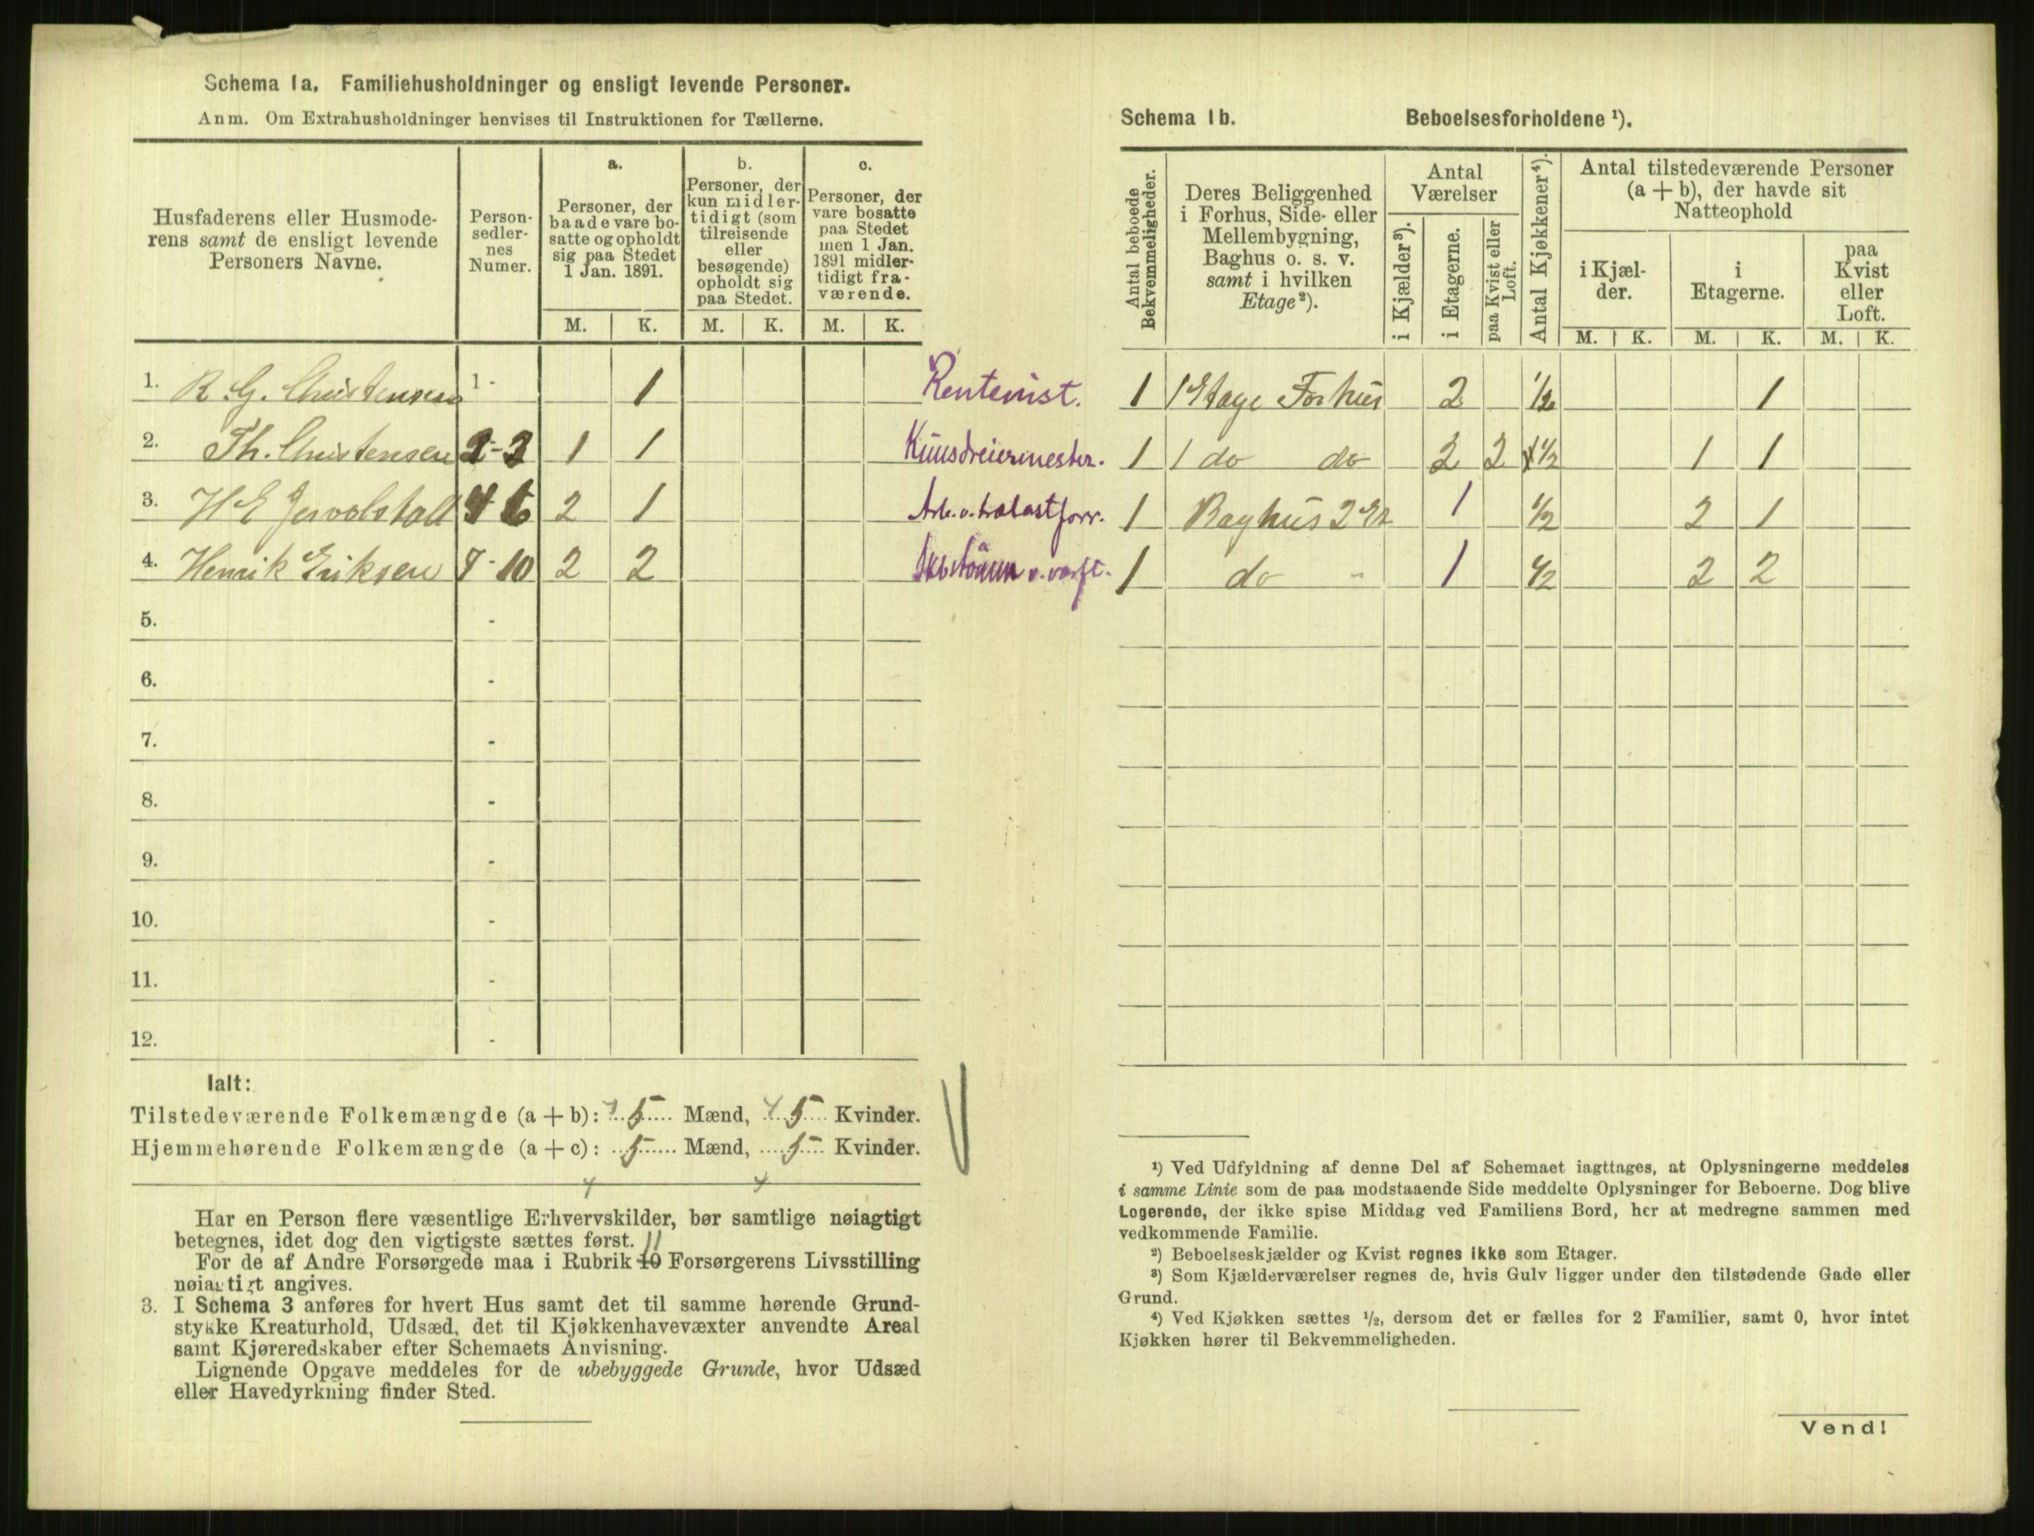 Schema 1a. Familiehusholdninger og ensligt levende Personer.
Anm. Om Extrahusholdninger henvises til Instruktionen for Tællerne.
Husfaderens eller Husmode-
rens samt de ensligt levende
Personers Navne.
Person-
sedler-
nes
Numer.
a.
Personer, der
baade vare bo-
satte og opholdt
sig paa Stedet
1 Jan. 1891.
b.
Personer, der
kun midler-
tidigt (som
tilreisende
eller
besøgende)
opholdt sig
paa Stedet.
c.
Personer, der
vare bosatte
paa Stedet
men 1 Jan.
1891 midler-
tidigt fra-
værende.
M. K. M. K. M. K.
1. R G. Christensen 1 - 1
2. Th. Christensen 2-3 1 1
3. H E 4 6 2 1
4. Henrik Eriksen 7-10 2 2
5. -
6. -
7. -
8. -
9. -
10. -
11. -
12. -
Ialt:
Tilstedeværende Folkemængde (a + b): 5 Mænd, 5 Kvinder.
Hjemmehørende Folkemængde (a + c): 5 Mænd, 5 Kvinder.
Har en Person flere væsentlige Erhvervskilder, bør samtlige nøiagtigt
betegnes, idet dog den vigtigste sættes først.
11
For de af Andre Forsørgede maa i Rubrik 10 Forsørgerens Livsstilling
nøiagtigt angives.
3. I Schema 3 anføres for hvert Hus samt det til samme hørende Grund-
stykke Kreaturhold, Udsæd, det til Kjøkkenhavevæxter anvendte Areal
samt Kjøreredskaber efter Schemaets Anvisning.
Lignende Opgave meddeles for de ubebyggede Grunde, hvor Udsæd
eller Havedyrkning finder Sted.
Schema 1b. Beboelsesforholdene ¹).
Antal beboede
Bekvemmeligheder.
Deres Beliggenhed
i Forhus, Side- eller
Mellembygning,
Baghus o. s. v.
samt i hvilken
Etage²).
Antal
Værelser
i Kjælder³).
i Etagerne.
paa Kvist eller
Loft.
Antal Kjøkkener⁴).
Antal tilstedeværende Personer
(a + b), der havde sit
Natteophold
i Kjæl-
der.
i
Etagerne.
paa
Kvist
eller
Loft.
M. K. M. K. M. K.
Rentenist. 1 1 Etage Forhus 2 1/2 1
Kunsdreiermester. 1 1 do do 2 2 1/2 1 1
Arb. v. trælastforr. 1 Baghus 2 Et 1 1/2 2 1
v. værft. 1 do - 1 1/2 2 2
¹) Ved Udfyldning af denne Del af Schemaet iagttages, at Oplysningerne meddeles
i samme Linie som de paa modstaaende Side meddelte Oplysninger for Beboerne. Dog blive
Logerende, der ikke spise Middag ved Familiens Bord, her at medregne sammen med
vedkommende Familie.
²) Beboelseskjælder og Kvist regnes ikke som Etager.
³) Som Kjælderværelser regnes de, hvis Gulv ligger under den tilstødende Gade eller
Grund.
⁴) Ved Kjøkken sættes ½, dersom det er fælles for 2 Familier, samt 0, hvor intet
Kjøkken hører til Bekvemmeligheden.
Vend!